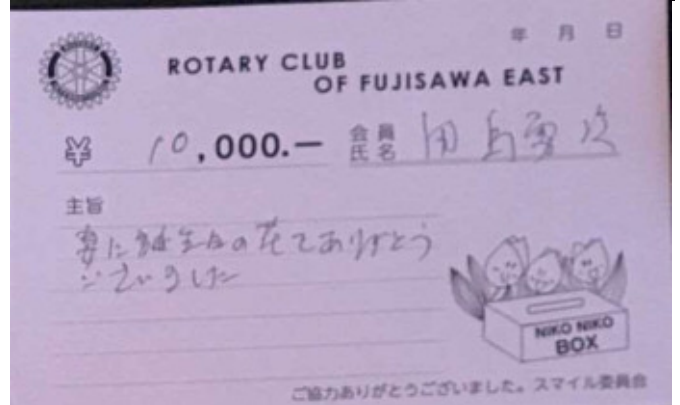 年 月 日
ROTARY CLUB
OF FUJISAWA EAST
¥ 10,000.— 会員氏名 田島
主旨
妻に誕生日の花をありがとう
ございました
NIKO NIKO
BOX
ご協力ありがとうございました。スマイル委員会